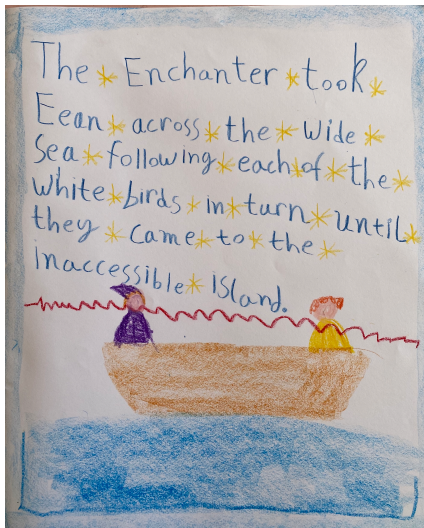 The Enchanter took
Eean across the Wide
Sea following each of the
white birds in turn until
they came to the
inaccessible island.